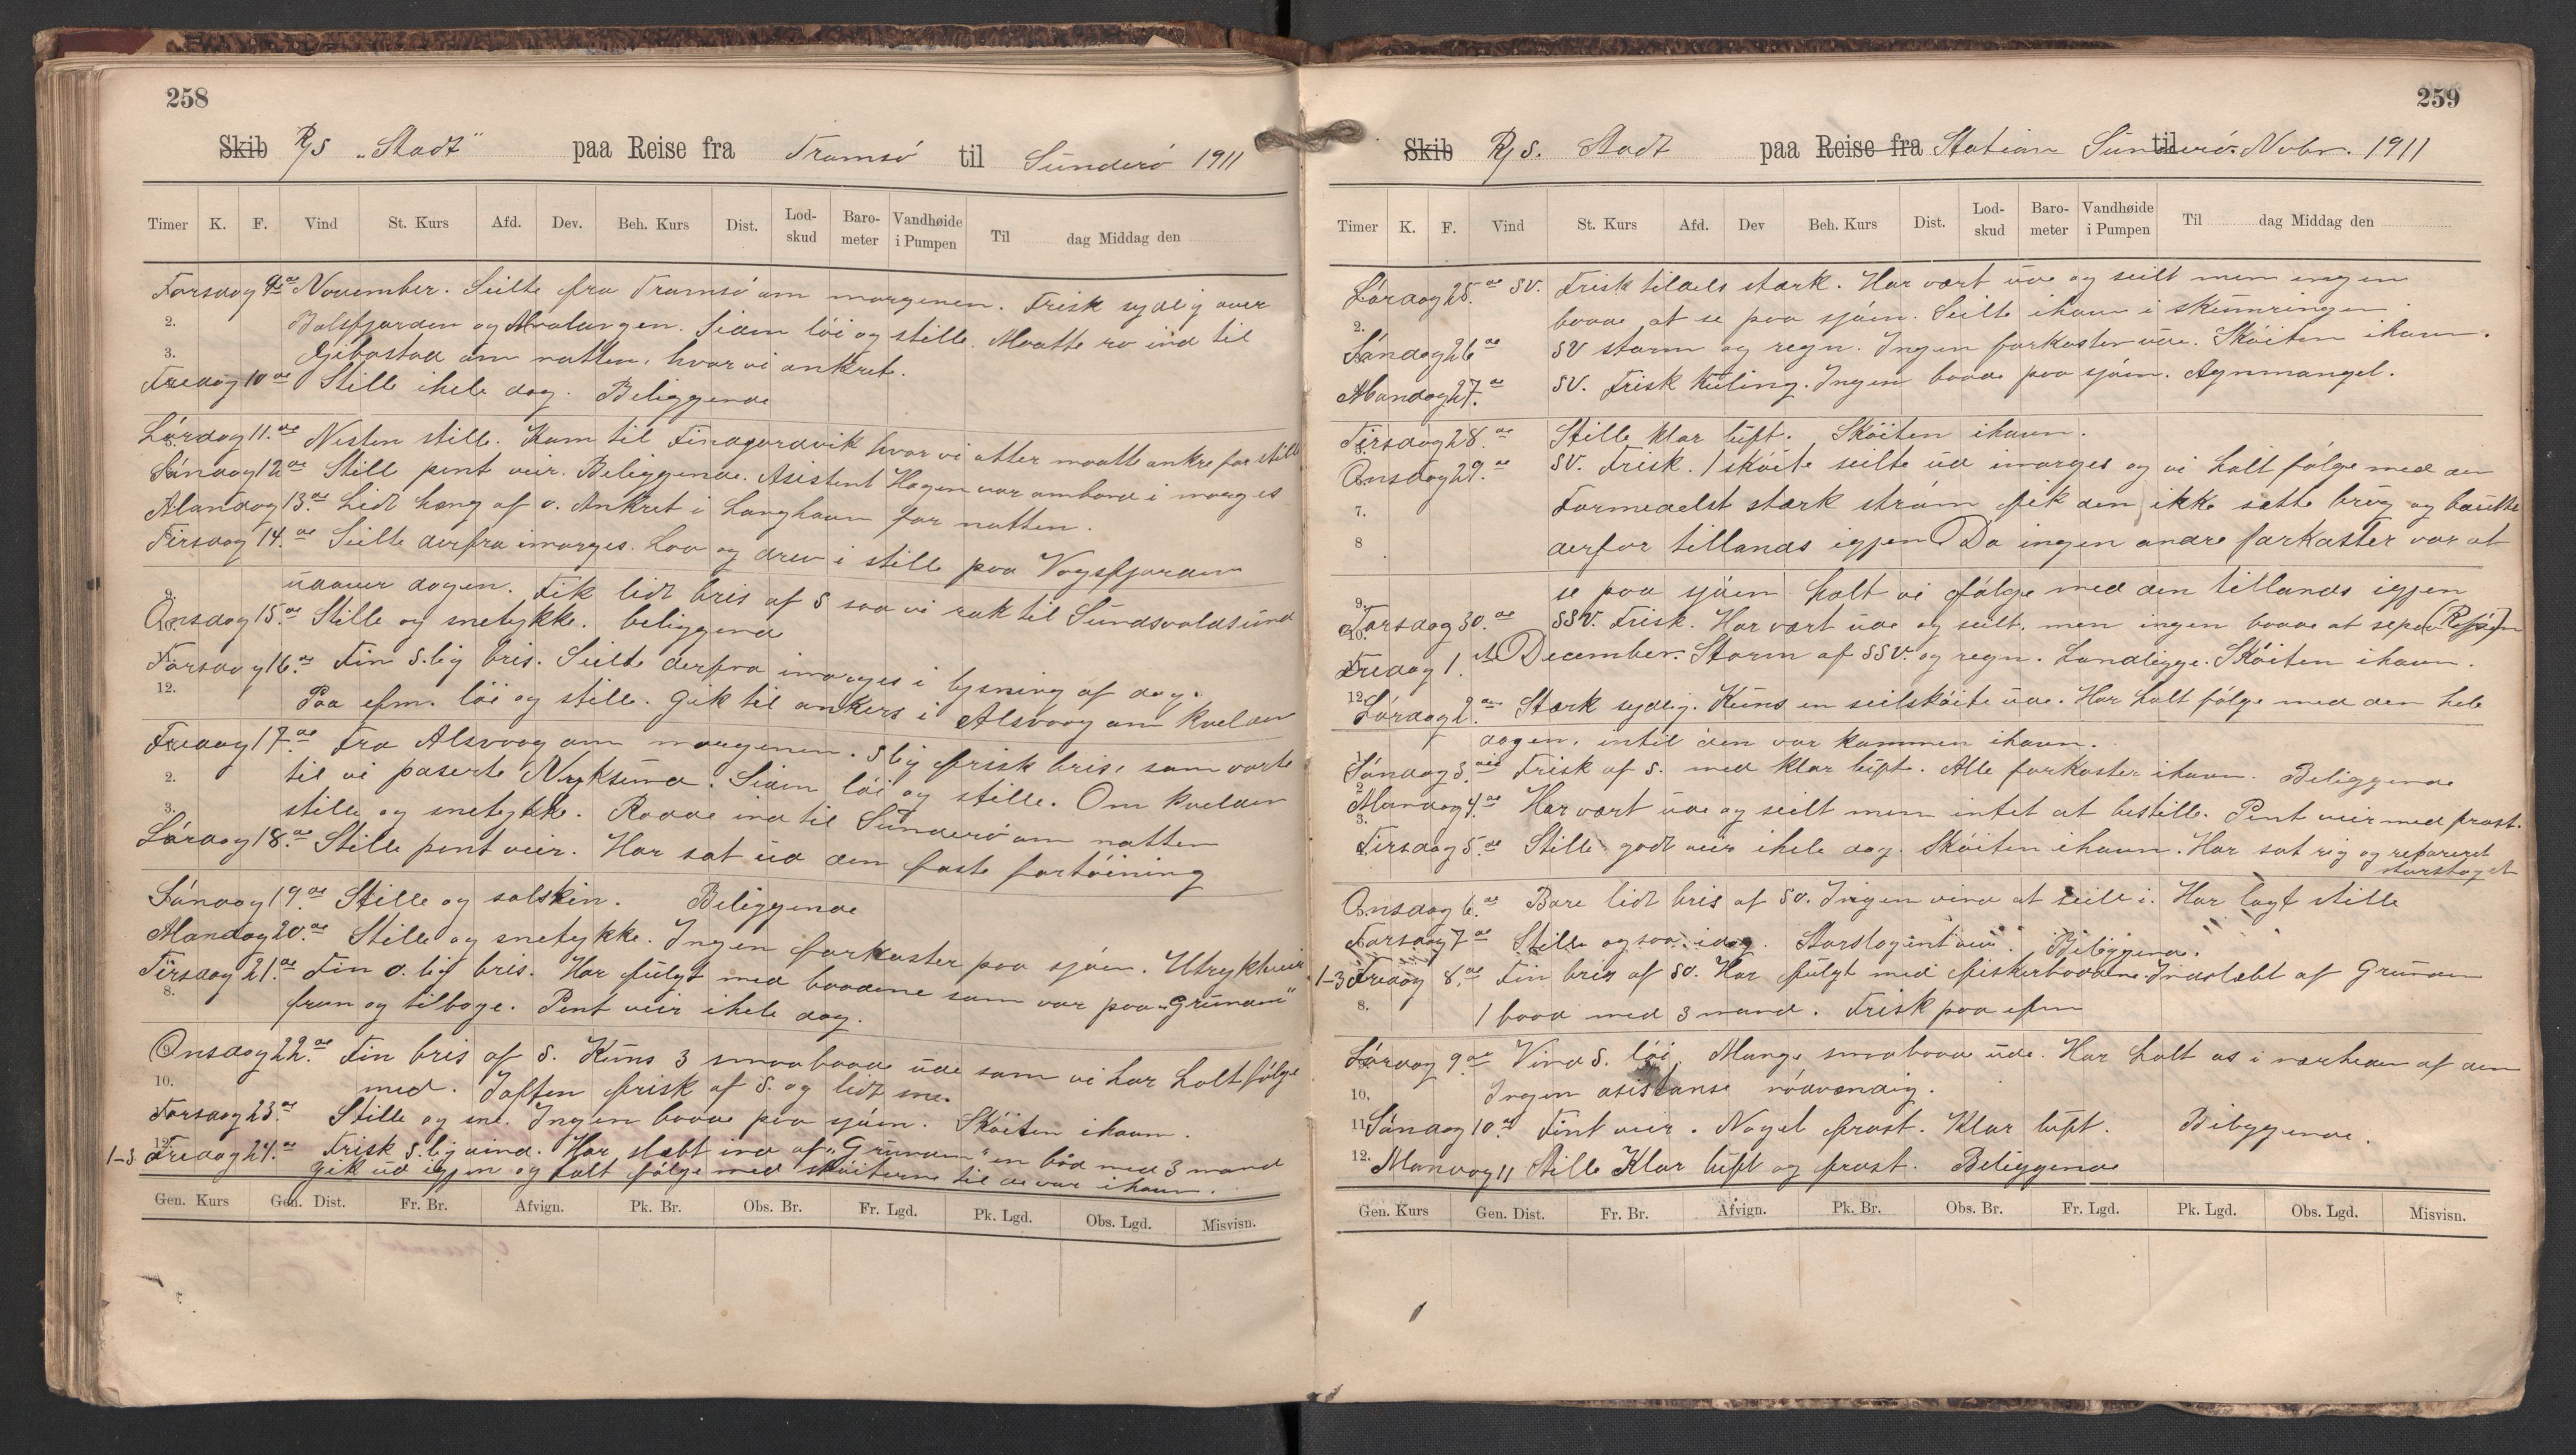 258
Skib R/S „Stadt" paa Reise fra Tromsø til Sünderø 1911
Timer K. F. Vind St. Kurs Afd. Dev. Beh. Kurs Dist. Lod-skud Baro-meter Vandhøide i Pumpen Til dag Middag den
Torsdag 9de November. Seilte fra Tromsø om morgenen. Frisk sydlig over
2. Balsfjorden og Malangen. Siden löi og stille. Maatte ro ind til
3. Gibostad om natten, hvor vi ankret.
Fredag 10de Stille ihele dag. Beliggende
Lördag 11.de Nesten stille. Kom til Findgardvik hvor vi atter maatte ankre for stille
Söndag 12de Still pent veir. Beliggende. Asistent Hagen var ombord i morges
Mandag 13.de Lidt hæng af o. Ankret i Langhavn for natten.
Tirsdag 14.de Seilte derfra imorges. Lov og drev i still paa Vogsfjorden
9. udover dagen. Fik lidt bris af S saa vi rak til Sundsvoldsund
Onsdag 15.de Stille og snetykke. beliggende
Torsdag 16.de Fin S.lig bris. Seilte derfra imorges i lysning af dag.
12. Paa efm. löi og stille. Gik til ankers i Alsvaag om kvelden
Fredag 17de Fra Alsvaag om morgenen. S lig frisk bris, som varte
2. til vi paserte Nyksund. Siden löi og stille. Om kvelden
3. stille og snetykke. Roade ind til Sünderö om natten
Lördag 18.de Stille pent veir. Har sat ud den faste fortöining
Söndag 19.de Stille og solskin. Beliggende
Mandag 20.de Stille og snetykke. Ingen farkoster paa sjöen. Utrykt veir
Tirsdag 21.de Fin o. lig bris. Har fülgt med baadene som var paa „Grunden"
8. fram og tilbage. Pent veir ihele dag.
Onsdag 22.de Fin bris af S. Kuns 3 smaabaade üde som vi har holt fölge
10. med. Iaften frisk af S. og lidt sne.
Torsdag 23.de Stille og sne. Ingen baade paa sjöen. Sköiten ihavn.
1-3 12. Fredag 24.de Frisk S. lig vind. Har slæbt ind af „Grunden" en båd med 3 mand
Gik üd igjen og holt fölge med sköiterne til de var i havn.
Gen. Kurs Gen. Dist. Fr. Br. Afvign. Pk. Br. Obs. Br. Fr. Lgd. Pk. Lgd. Obs. Lgd. Misvisn.
259
Skib R/S. Stadt paa Reise fra Station Sünderö til Nvbr. 1911
Timer K. F. Vind St. Kurs Afd. Dev Beh. Kurs Dist. Lod-skud Baro-meter Vandhøide i Pumpen Til dag Middag den
Lördag 25.de SV. Frisk tildels stærk. Har vært üde og seilt men ingen
2. baade at se paa sjöen. Seilte ihavn i skümringen
Söndag 26de SV storm og regn. Ingen farkoster üde. Sköiten ihavn.
Mandag 27.de SV. Frisk küling. Ingen baade paa sjöen. Agnmangel.
Tirsdag 28.de Stille klar lüft. Sköiten ihavn.
Onsdag 29.de SV. Frisk. 1 sköite seilte üd imorges og vi holt fölge med den
7. Formedelst stærk ström fik den ikke sætte brüg og bautte
8 derfor tillands igjen. Da ingen andre farkoster var at
9. se paa sjöen holt vi fölge med den tillands igjen
10. Torsdag 30.de SSV. Frisk. Har vært üde og seilt, men ingen baade at se paa sjöen
Fredag 1.ste December. Storm af SSV. og regn. Landligge. Sköiten ihavn.
12. Lördag 2.den Stærk sydlig. Kuns en seilsköite üde. Har holt fölge med den hele
dagen, intil den var kommen ihavn.
Söndag 3.die Frisk af S. med klar lüft. Alle farkoster ihavn. Beliggende
2. Mandag 4.de Har vært üde og seilt men intet at bestille. Pent veir med frost.
3. Tirsdag 5.de Stille godt veir ihele dag. Sköiten ihavn. Har sat rig og repareret
storstaget
Onsdag 6.de Bare lidt bris af SO. Ingen vind at seile i. Har lagt stille
Torsdag 7de Stille ogsaa idag. Beliggende.
1-3 Fredag 8.de Fin bris af SO. Har fülgt med fiskerbaadene. Indslæbt af Grunden
8. 1 baad med 3 mand. Frisk paa efm
Lördag 9.de Vind S. löi. Mange smaabaade üde. Har holt os i nærheden af dem
10. Ingen asistanse nödvendig.
11 Söndag 10.de Fint veir. Noget frost. Klar lüft. Beliggende.
12. Mandag 11 Stille Klar lüft og frost. Beliggende
Gen. Kurs Gen. Dist. Fr. Br. Afvign. Pk. Br. Obs. Br. Fr. Lgd. Pk. Lgd. Obs. Lgd. Misvisn.